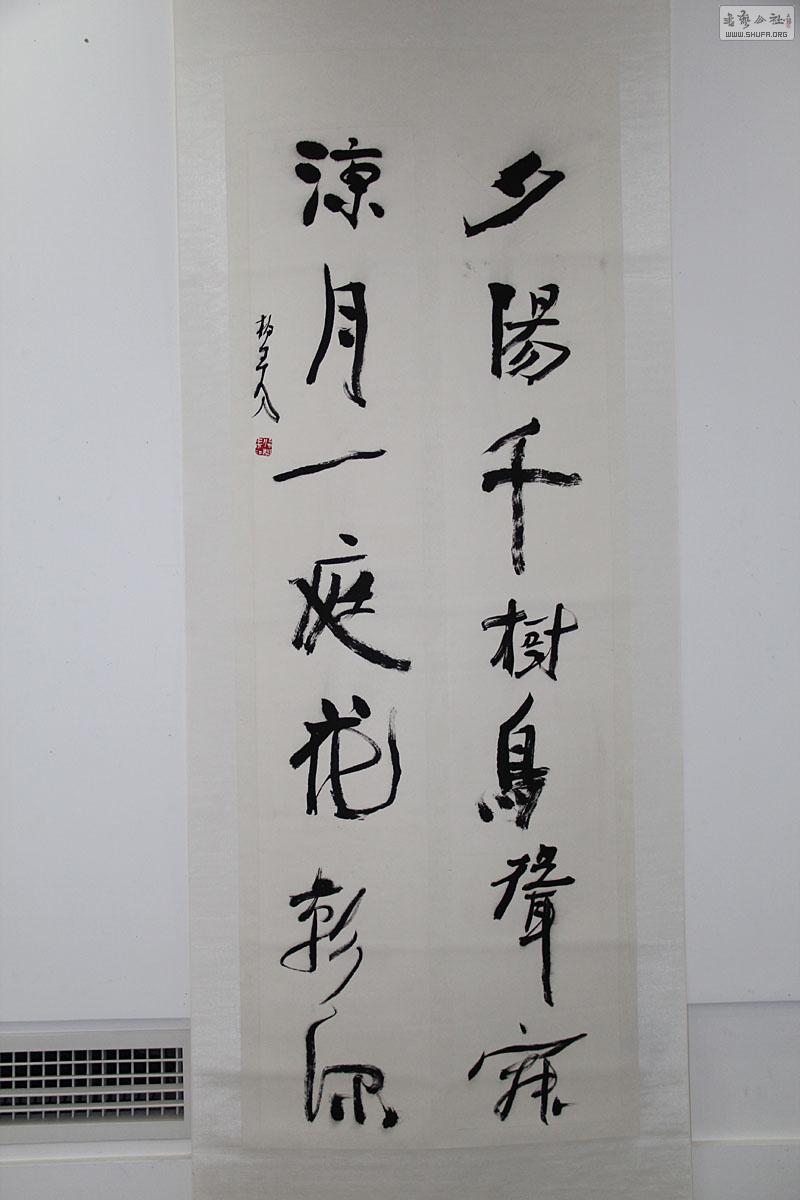 夕陽千樹鳥聲寂
涼月一庭花影深
书艺公社
WWW.SHUFA.ORG